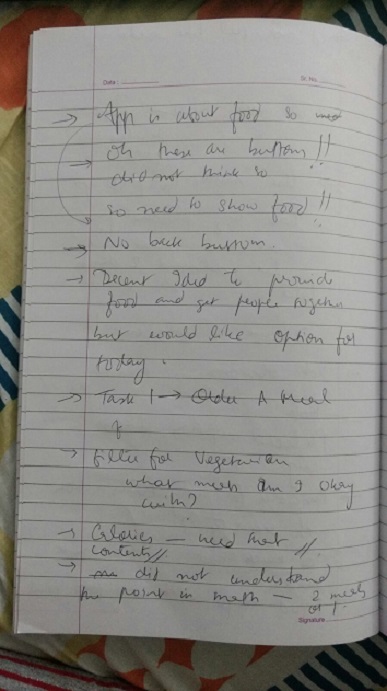 Date :
Sr. No.
→ App is about food so need
→ Oh these are buttons !!
did not think so
so need to show food !!
→ No back button.
→ Decent Idea to provide
food and get people together
but would like option for
today.
→ Task 1 → Order A Meal
→ Filter for Vegetarian
what meals am I okay
with?
→ Calories — need that //
contents //
→ did not understand
the point in math — 2 meals
Signature